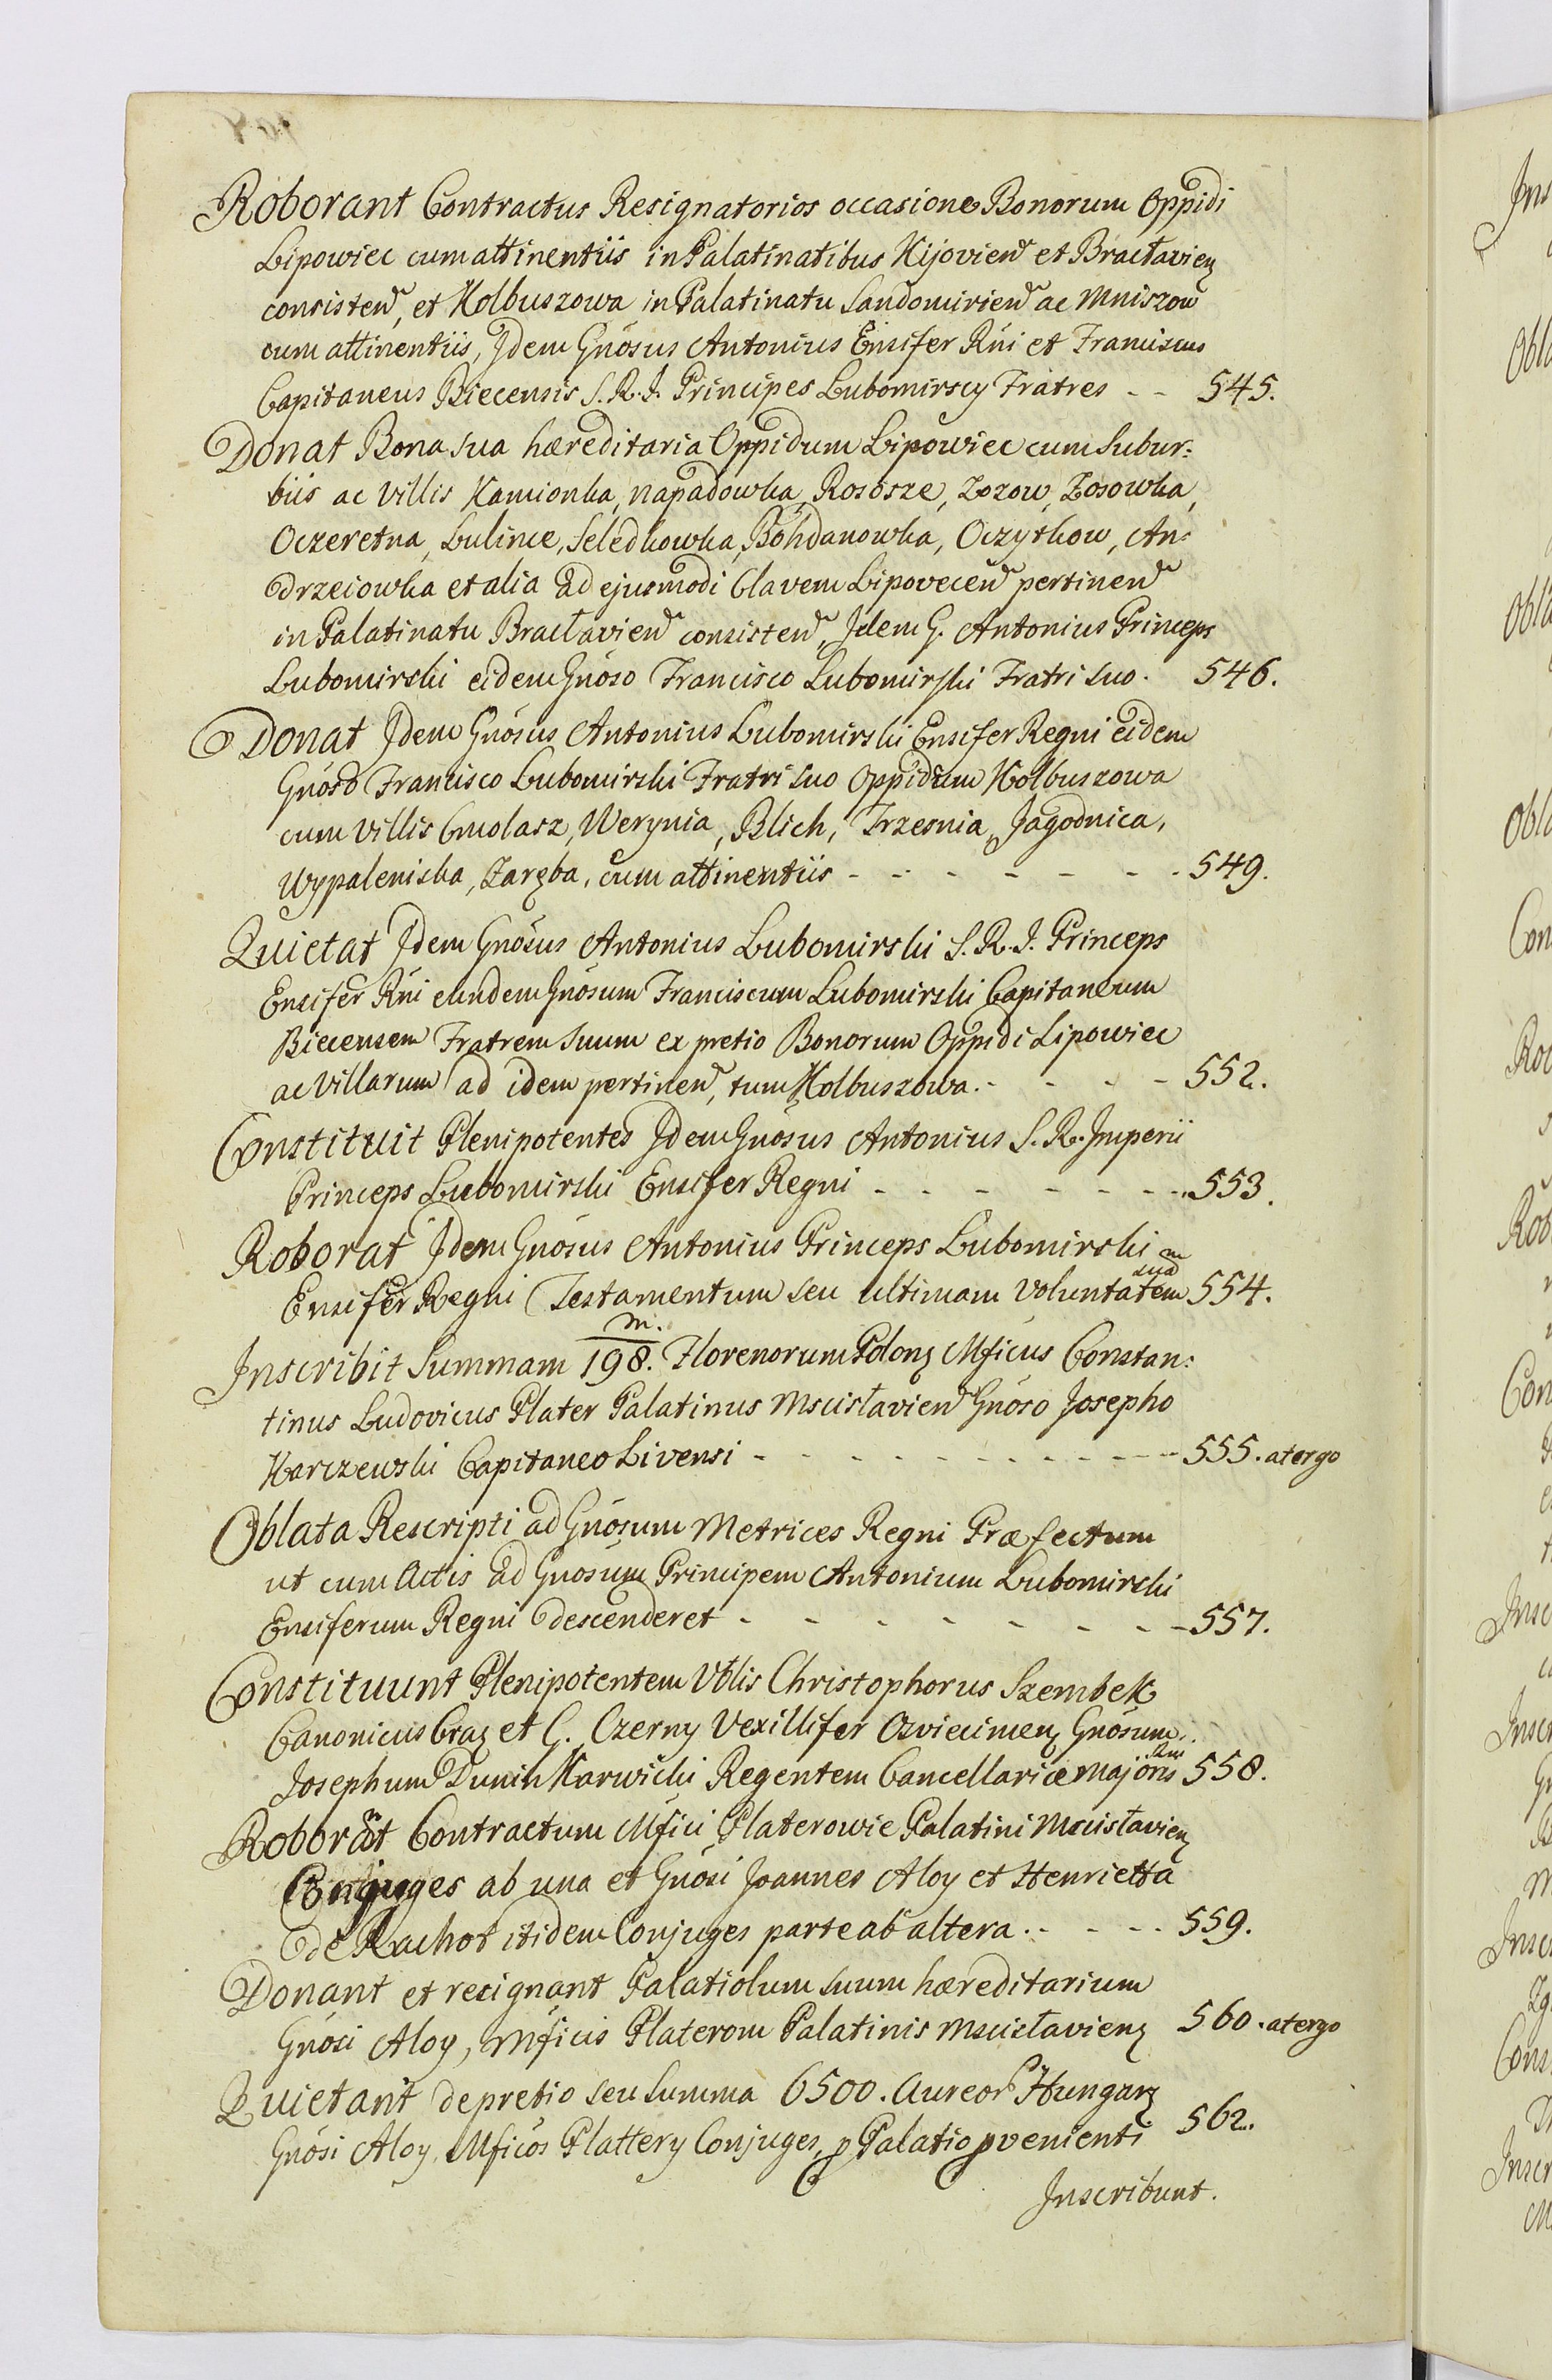 Roborant Contractus Resignatorios occasione Bonorum Oppidi
Lipowiec cum attinentiis in Palatinatibus Kijovien et Bracłavien
consisten, et Kolbuszowa in Palatinatu Sandomirien ac Mniszow
cum attinentiis, Jdem Gnosus Antonius Ensifer Rni et Franciscus
Capitaneus Biecensis S. R. J. Principes Lubomirscy Fratres - - 545.
Donat Bona sua hæreditaria Oppidum Lipowiec cum Subur:
biis ac Villis Kamionka, Napadowka, Rososze, Zozow, Zosowka,
Oczeretna, Lulince, Seledkowka, Bohdanowka, Oczytkow, An:
drzeiowka et alia ad ejusmodi Clavem Lipovecen pertinen
in Palatinatu Bracłavien consisten, Jdem G. Antonius Princeps
Lubomirski eidem Gnoso Francisco Lubomirski Fratri suo. 546.
Donat Jdem Gnosus Antonius Lubomirski Ensifer Regni eidem
Gnoso Francisco Lubomirski Fratri suo Oppidum Kolbuszowa
cum Villis Cmolasz, Werynia, Blich, Trzesnia, Jagodnica,
Wypaleniska, Zaręba, cum attinentiis - - - - - - - 549.
Quietat Jdem Gnosus Antonius Lubomirski S. R. J. Princeps
Ensifer Rni eundem Gnosum Franciscum Lubomirski Capitaneum
Biecensem Fratrem suum ex pretio Bonorum Oppidi Lipowiec
ac Villarum ad idem pertinen, tum Kolbuszowa. - - - - 552.
Constituit Plenipotentes Jdem Gnosus Antonius S. R. Jmperii
Princeps Lubomirski Ensifer Regni - - - - - - - 553.
Roborat Jdem Gnosus Antonius Princeps Lubomirski
Ensifer Regni Testamentum seu ultimam voluntatem suam 554.
Jnscribit Summam 198.m. Florenorum Polon Mficus Constan:
tinus Ludovicus Plater Palatinus Mscisłavien Gnoso Josepho
Karczewski Capitaneo Livensi - - - - - - - - - - 555. atergo
Oblata Rescripti ad Gnosum Metrices Regni Præfectum
ut cum Actis ad Gnosum Principem Antonium Lubomirski
Ensiferum Regni descenderet - - - - - - - - 557.
Constituunt Plenipotentem Vblis Christophorus Szembek
Canonicus Crac et G. Czerny Vexillifer Osviecimen Gnosum
Josephum Dunin Karwicki Regentem Cancellariæ Majoris Rni 558.
Roborant Contractum Mfici Platerowie Palatini Mscisłavien
Conjuges ab una et Gnosi Joannes Aloy et Henrietta
de Rachot itidem Conjuges parte ab altera. - - - - 559.
Donant et resignant Palatiolum suum hæreditarium
Gnosi Aloy, Mficis Platerom Palatinis Mscisłavien 560. atergo
Quietant de pretio seu Summa 6500. Aureor Hungar
Gnosi Aloy, Mficos Plattery Conjuges, p Palatio pvenienti 562.
Jnscribunt.